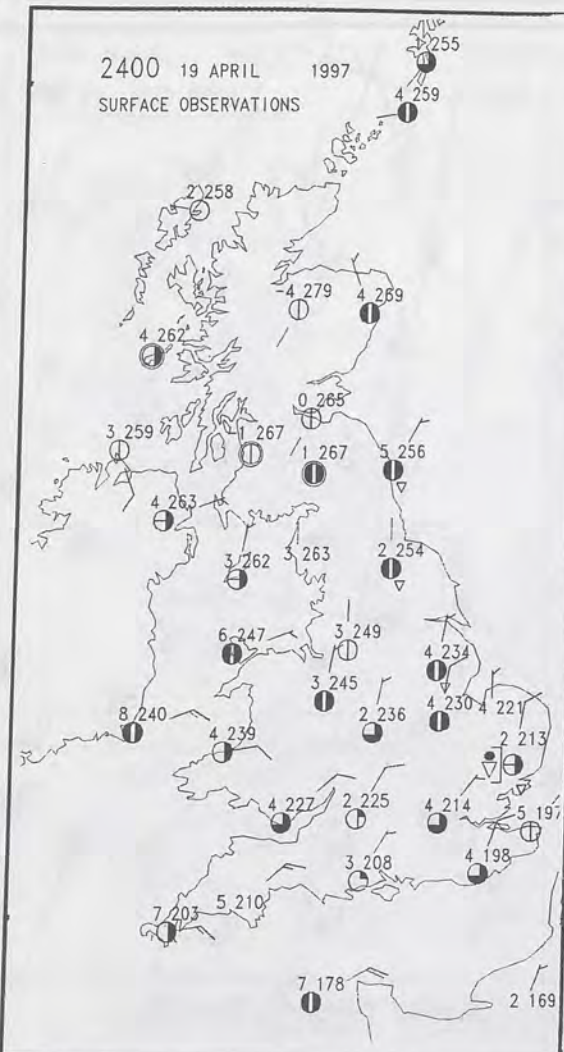 2400 19 APRIL 1997
SURFACE OBSERVATIONS
255
4 259
2 258
-4 279
4 269
4 262
0 265
3 259
1 267
1 267
5 256
4 263
3 262
3 263
2 254
6 247
3 249
4 234
3 245
4 230
4 221
8 240
4 239
2 236
2 213
4 227
2 225
4 214
5 197
3 208
4 198
5 210
7 203
7 178
2 169